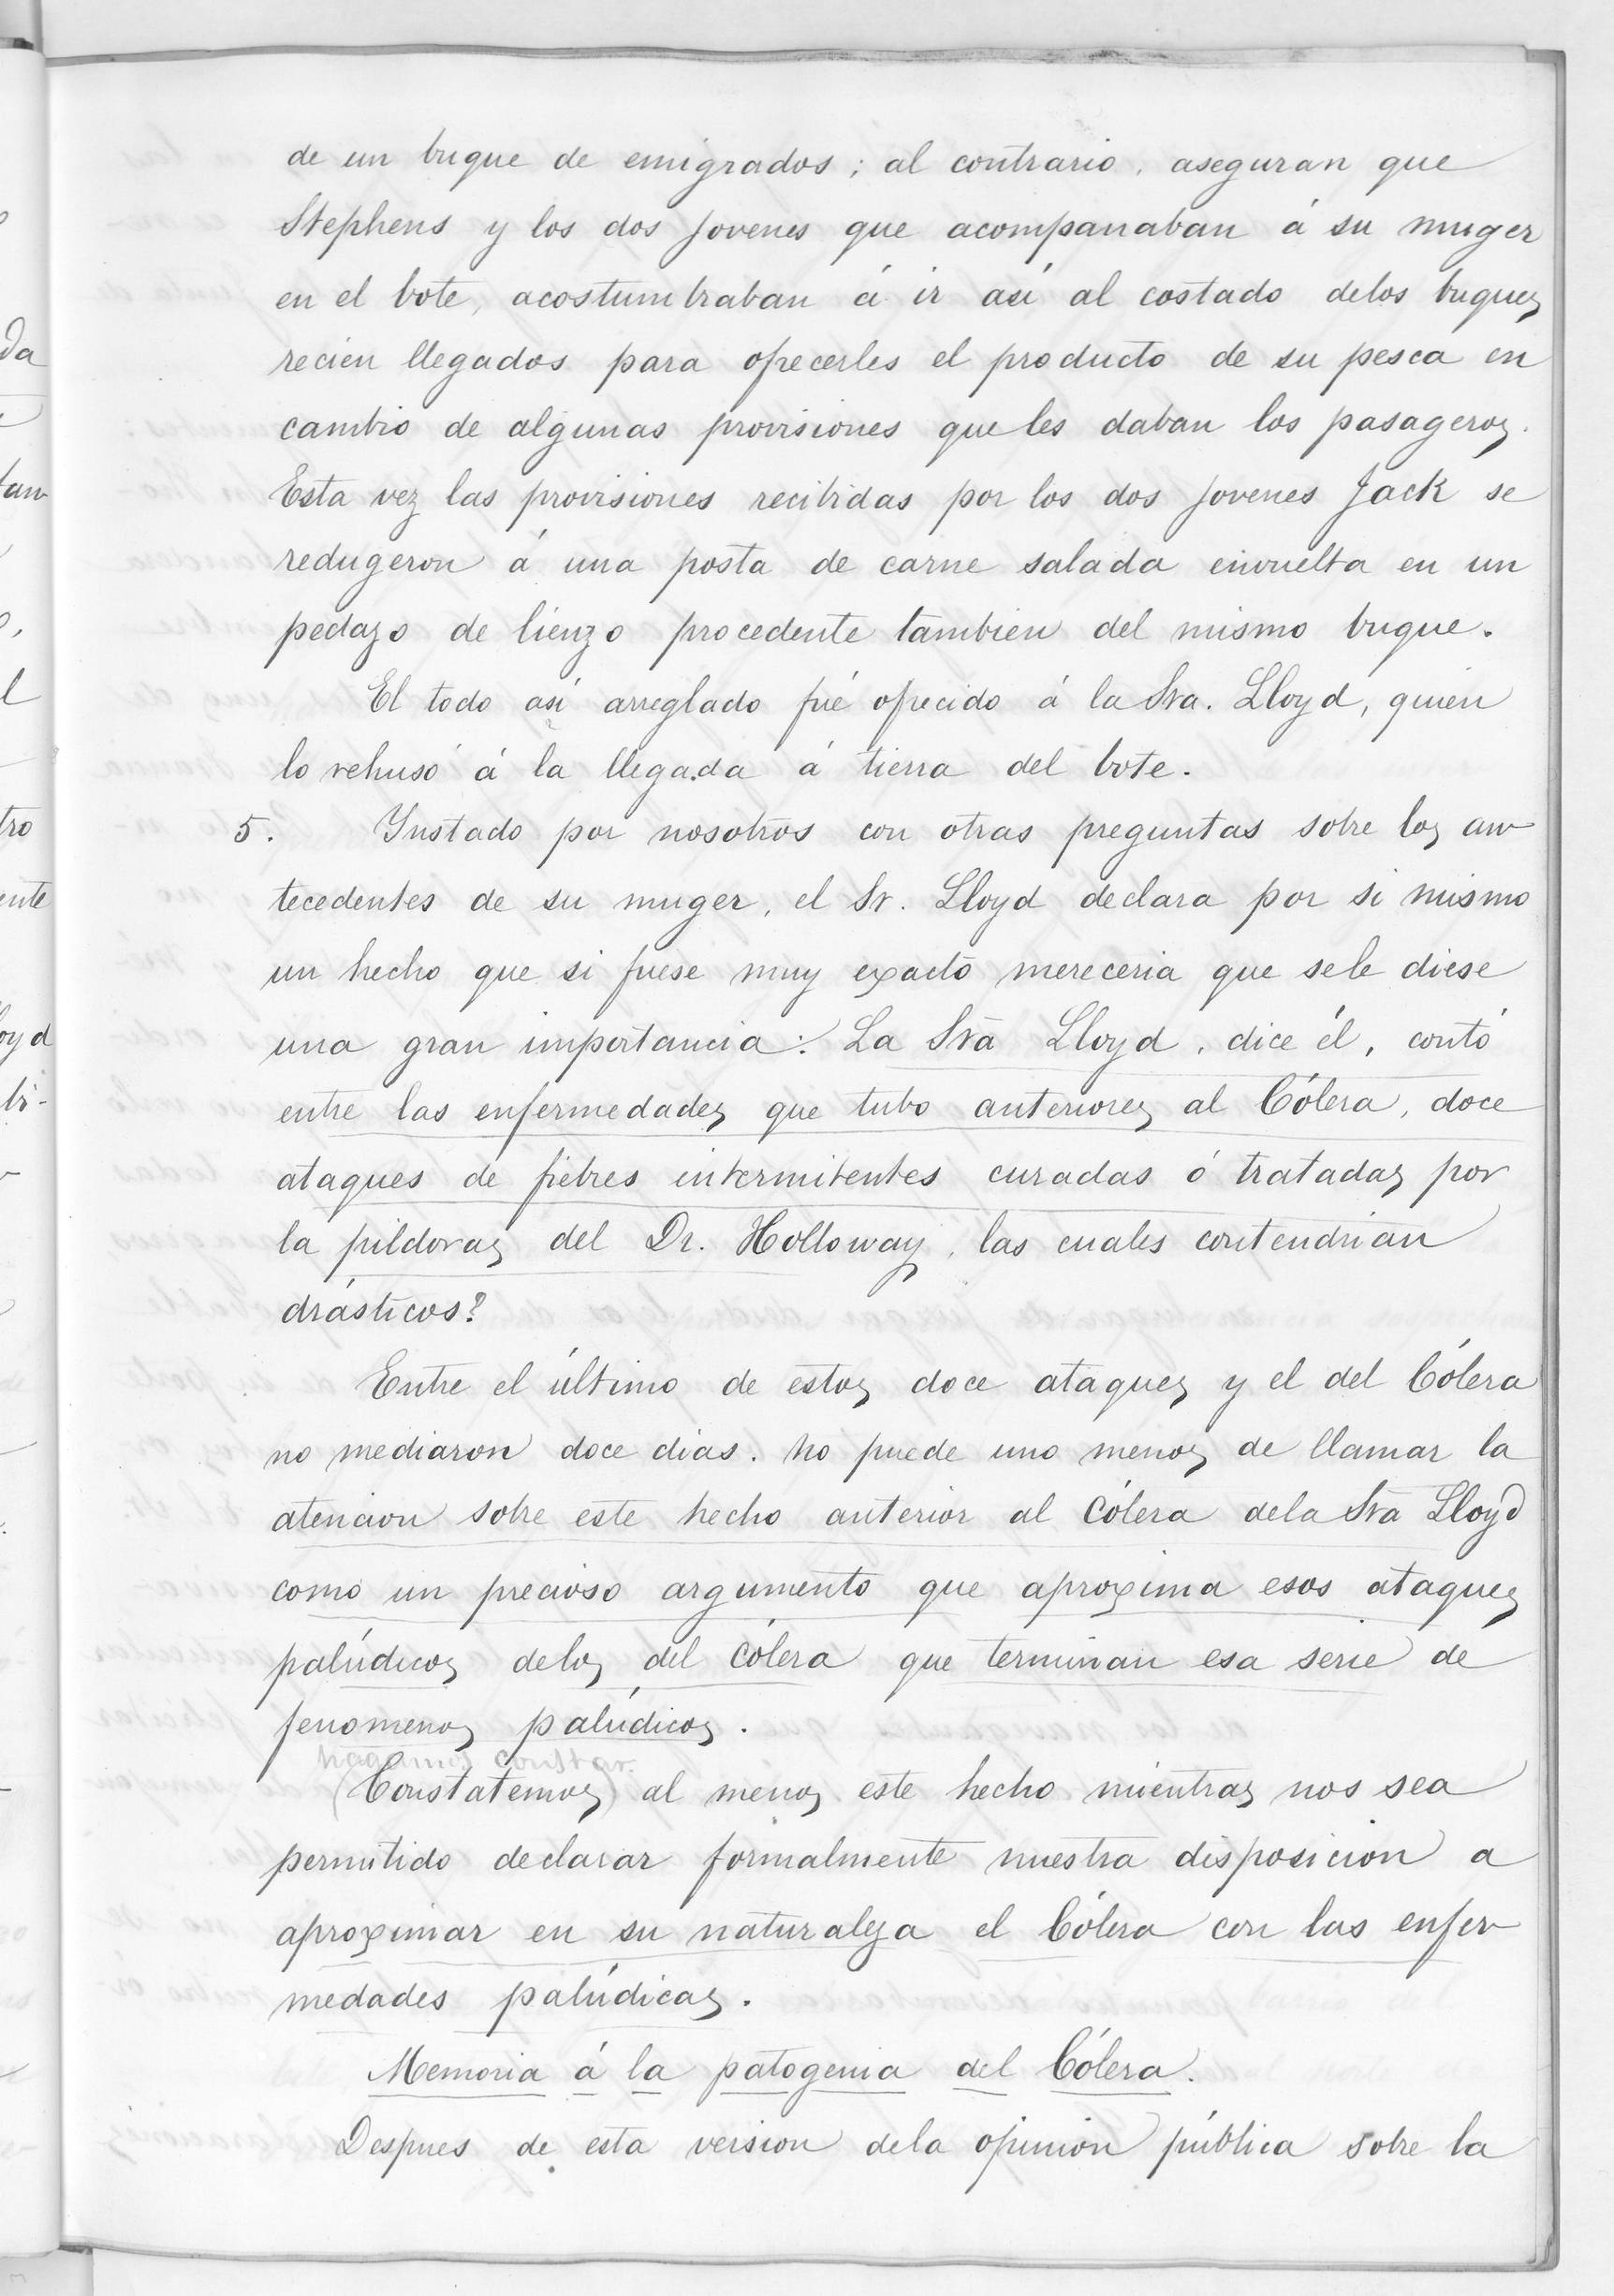 de un buque de emigrados; al contrario, aseguran que
Stephens y los dos jovenes que acompanaban á su muger
en el bote, acostumbraban á ir así al costado delos buques
recien llegados para ofrecerles el producto de su pesca en
cambio de algunas provisiones que les daban los pasageros.
Esta vez las provisiones recibidas por los dos jovenes Jack se
redugeron á una posta de carne salada envuelta en un
pedazo de lienzo procedente tambien del mismo buque.
El todo así arreglado fué ofrecido á la Sra. Lloyd, quien
lo rehusó á la llegada á tierra del bote.
5. Instado por nosotros con otras preguntas sobre los an
tecedentes de su muger, el Sr. Lloyd declara por si mismo
un hecho que si fuese muy exacto mereceria que sele diese
una gran importancia: La Sra Lloyd, dice él, contó
entre las enfermedades que tubo anteriores al Cólera, doce
ataques de fiebres intermitentes curadas ó tratadas por
la pildoras del Dr. Holloway, las cuales contendrian
drásticos?
Entre el último de estos doce ataques y el del Cólera
no mediaron doce dias. No puede uno menos de llamar la
atencion sobre este hecho anterior al Cólera dela Sra Lloyd
como un precioso argumento que aproxima esos ataques
palúdicos delos del cólera que terminan esa serie de
fenomenos palúdicos.
hagamos constar.
(Constatemos) al menos este hecho mientras nos sea
permitido declarar formalmente nuestra disposicion a
aproximar en su naturaleza el Cólera con las enfer
medades palúdicas.
Memoria á la patogenia del Cólera.
Despues de esta version dela opinion pública sobre la